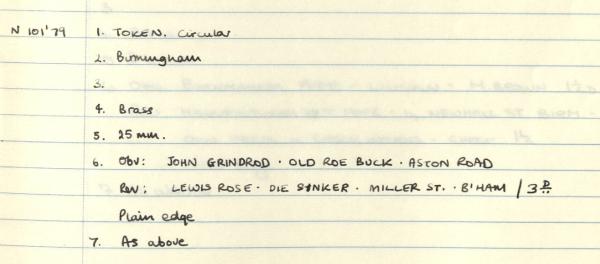 N 101'79 1. TOKEN. Circular
2. Birmingham
3.
4. Brass
5. 25 mm.
6. Obv: JOHN GRINDROD · OLD ROE BUCK · ASTON ROAD
Rev: LEWIS ROSE · DIE SINKER · MILLER ST. · B'HAM / 3 D
Plain edge
7. As above